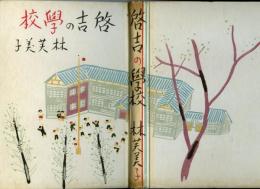 校學の吉啓
子美芙林
啓吉の學校 林芙美子